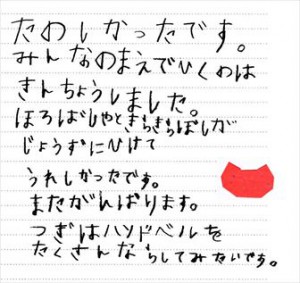 たのしかったです。
みんなのまえでひくのは
きんちょうしました。
ほろばしゃときらきらぼしが
じょうずにひけて
うれしかったです。
またがんばります。
つぎはハンドベルを
たくさんならしてみたいです。